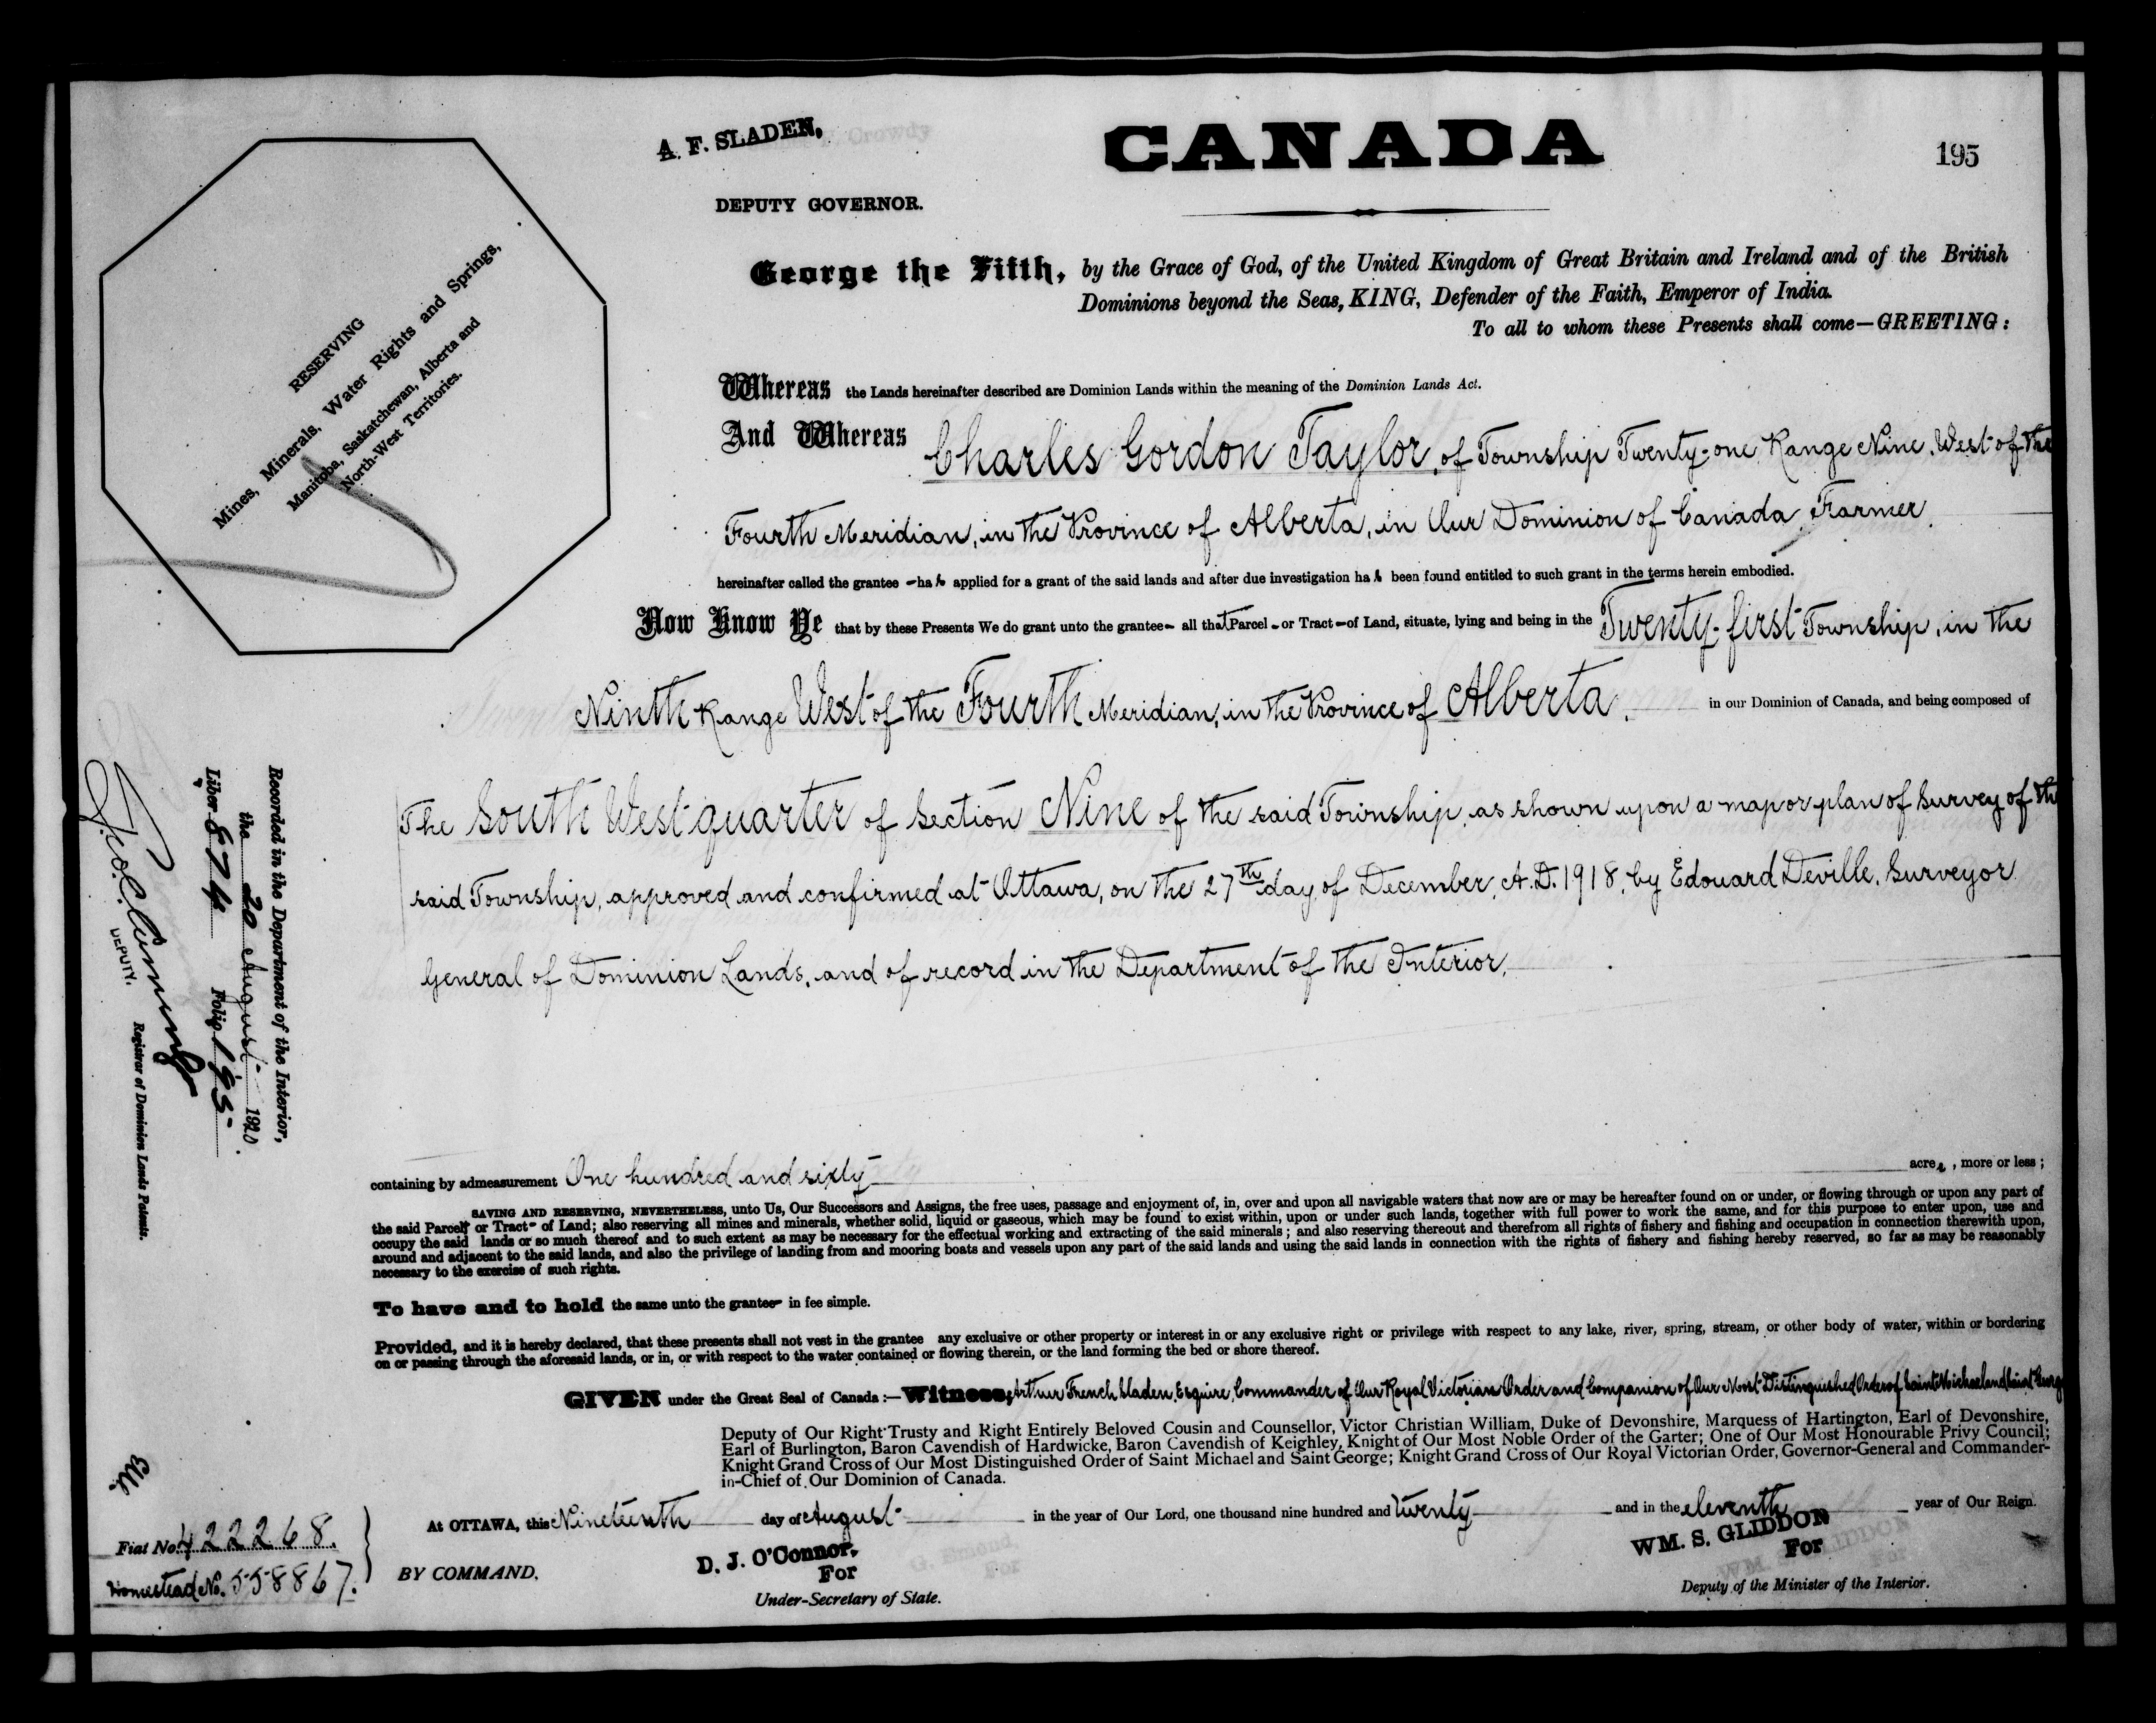 A. F. SLADEN,
DEPUTY GOVERNOR.
CANADA
195
RESERVING
Mines, Minerals, Water Rights and Springs,
Manitoba, Saskatchewan, Alberta and
North-West Territories.
George the Fifth, by the Grace of God, of the United Kingdom of Great Britain and Ireland and of the British
Dominions beyond the Seas, KING, Defender of the Faith, Emperor of India.
To all to whom these Presents shall come—GREETING:
Whereas the Lands hereinafter described are Dominion Lands within the meaning of the Dominion Lands Act.
And Whereas Charles Gordon Taylor, of Township Twenty-one, Range Nine, West of the
Fourth Meridian, in the Province of Alberta, in Our Dominion of Canada, Farmer,
hereinafter called the grantee - has applied for a grant of the said lands and after due investigation has been found entitled to such grant in the terms herein embodied.
Now Know Ye that by these Presents We do grant unto the grantee- all that Parcel - or Tract - of Land, situate, lying and being in the Twenty-first Township, in the
Ninth Range West of the Fourth Meridian, in the Province of Alberta, in our Dominion of Canada, and being composed of
The South West quarter of Section Nine of the said Township, as shown upon a map or plan of Survey of the
said Township, approved and confirmed at Ottawa, on the 27th day of December, A.D. 1918, by Edouard Deville, Surveyor
General of Dominion Lands, and of record in the Department of the Interior,
containing by admeasurement One hundred and sixty acres, more or less;
SAVING AND RESERVING, NEVERTHELESS, unto Us, Our Successors and Assigns, the free uses, passage and enjoyment of, in, over and upon all navigable waters that now are or may be hereafter found on or under, or flowing through or upon any part of
the said Parcel- or Tract- of Land; also reserving all mines and minerals, whether solid, liquid or gaseous, which may be found to exist within, upon or under such lands, together with full power to work the same, and for this purpose to enter upon, use and
occupy the said lands or so much thereof and to such extent as may be necessary for the effectual working and extracting of the said minerals; and also reserving thereout and therefrom all rights of fishery and fishing and occupation in connection therewith upon,
around and adjacent to the said lands, and also the privilege of landing from and mooring boats and vessels upon any part of the said lands and using the said lands in connection with the rights of fishery and fishing hereby reserved, so far as may be reasonably
necessary to the exercise of such rights.
To have and to hold the same unto the grantee- in fee simple.
Provided, and it is hereby declared, that these presents shall not vest in the grantee any exclusive or other property or interest in or any exclusive right or privilege with respect to any lake, river, spring, stream, or other body of water, within or bordering
on or passing through the aforesaid lands, or in, or with respect to the water contained or flowing therein, or the land forming the bed or shore thereof.
GIVEN under the Great Seal of Canada:—Witness, Arthur French Sladen, Esquire, Commander of Our Royal Victorian Order and Companion of Our Most Distinguished Order of Saint Michael and Saint George
Deputy of Our Right Trusty and Right Entirely Beloved Cousin and Counsellor, Victor Christian William, Duke of Devonshire, Marquess of Hartington, Earl of Devonshire,
Earl of Burlington, Baron Cavendish of Hardwicke, Baron Cavendish of Keighley, Knight of Our Most Noble Order of the Garter; One of Our Most Honourable Privy Council;
Knight Grand Cross of Our Most Distinguished Order of Saint Michael and Saint George; Knight Grand Cross of Our Royal Victorian Order, Governor-General and Commander-
in-Chief of Our Dominion of Canada.
At OTTAWA, this Nineteenth day of August in the year of Our Lord, one thousand nine hundred and twenty and in the eleventh year of Our Reign.
BY COMMAND,
D. J. O'Connor,
For
Under-Secretary of State.
WM. S. GLIDDON
For
Deputy of the Minister of the Interior.
Recorded in the Department of the Interior,
the 20 August 1920.
Liber 874 Folio 195
DEPUTY.
Registrar of Dominion Lands Patents.
Fiat No. 422268.
Homestead No. 558867.